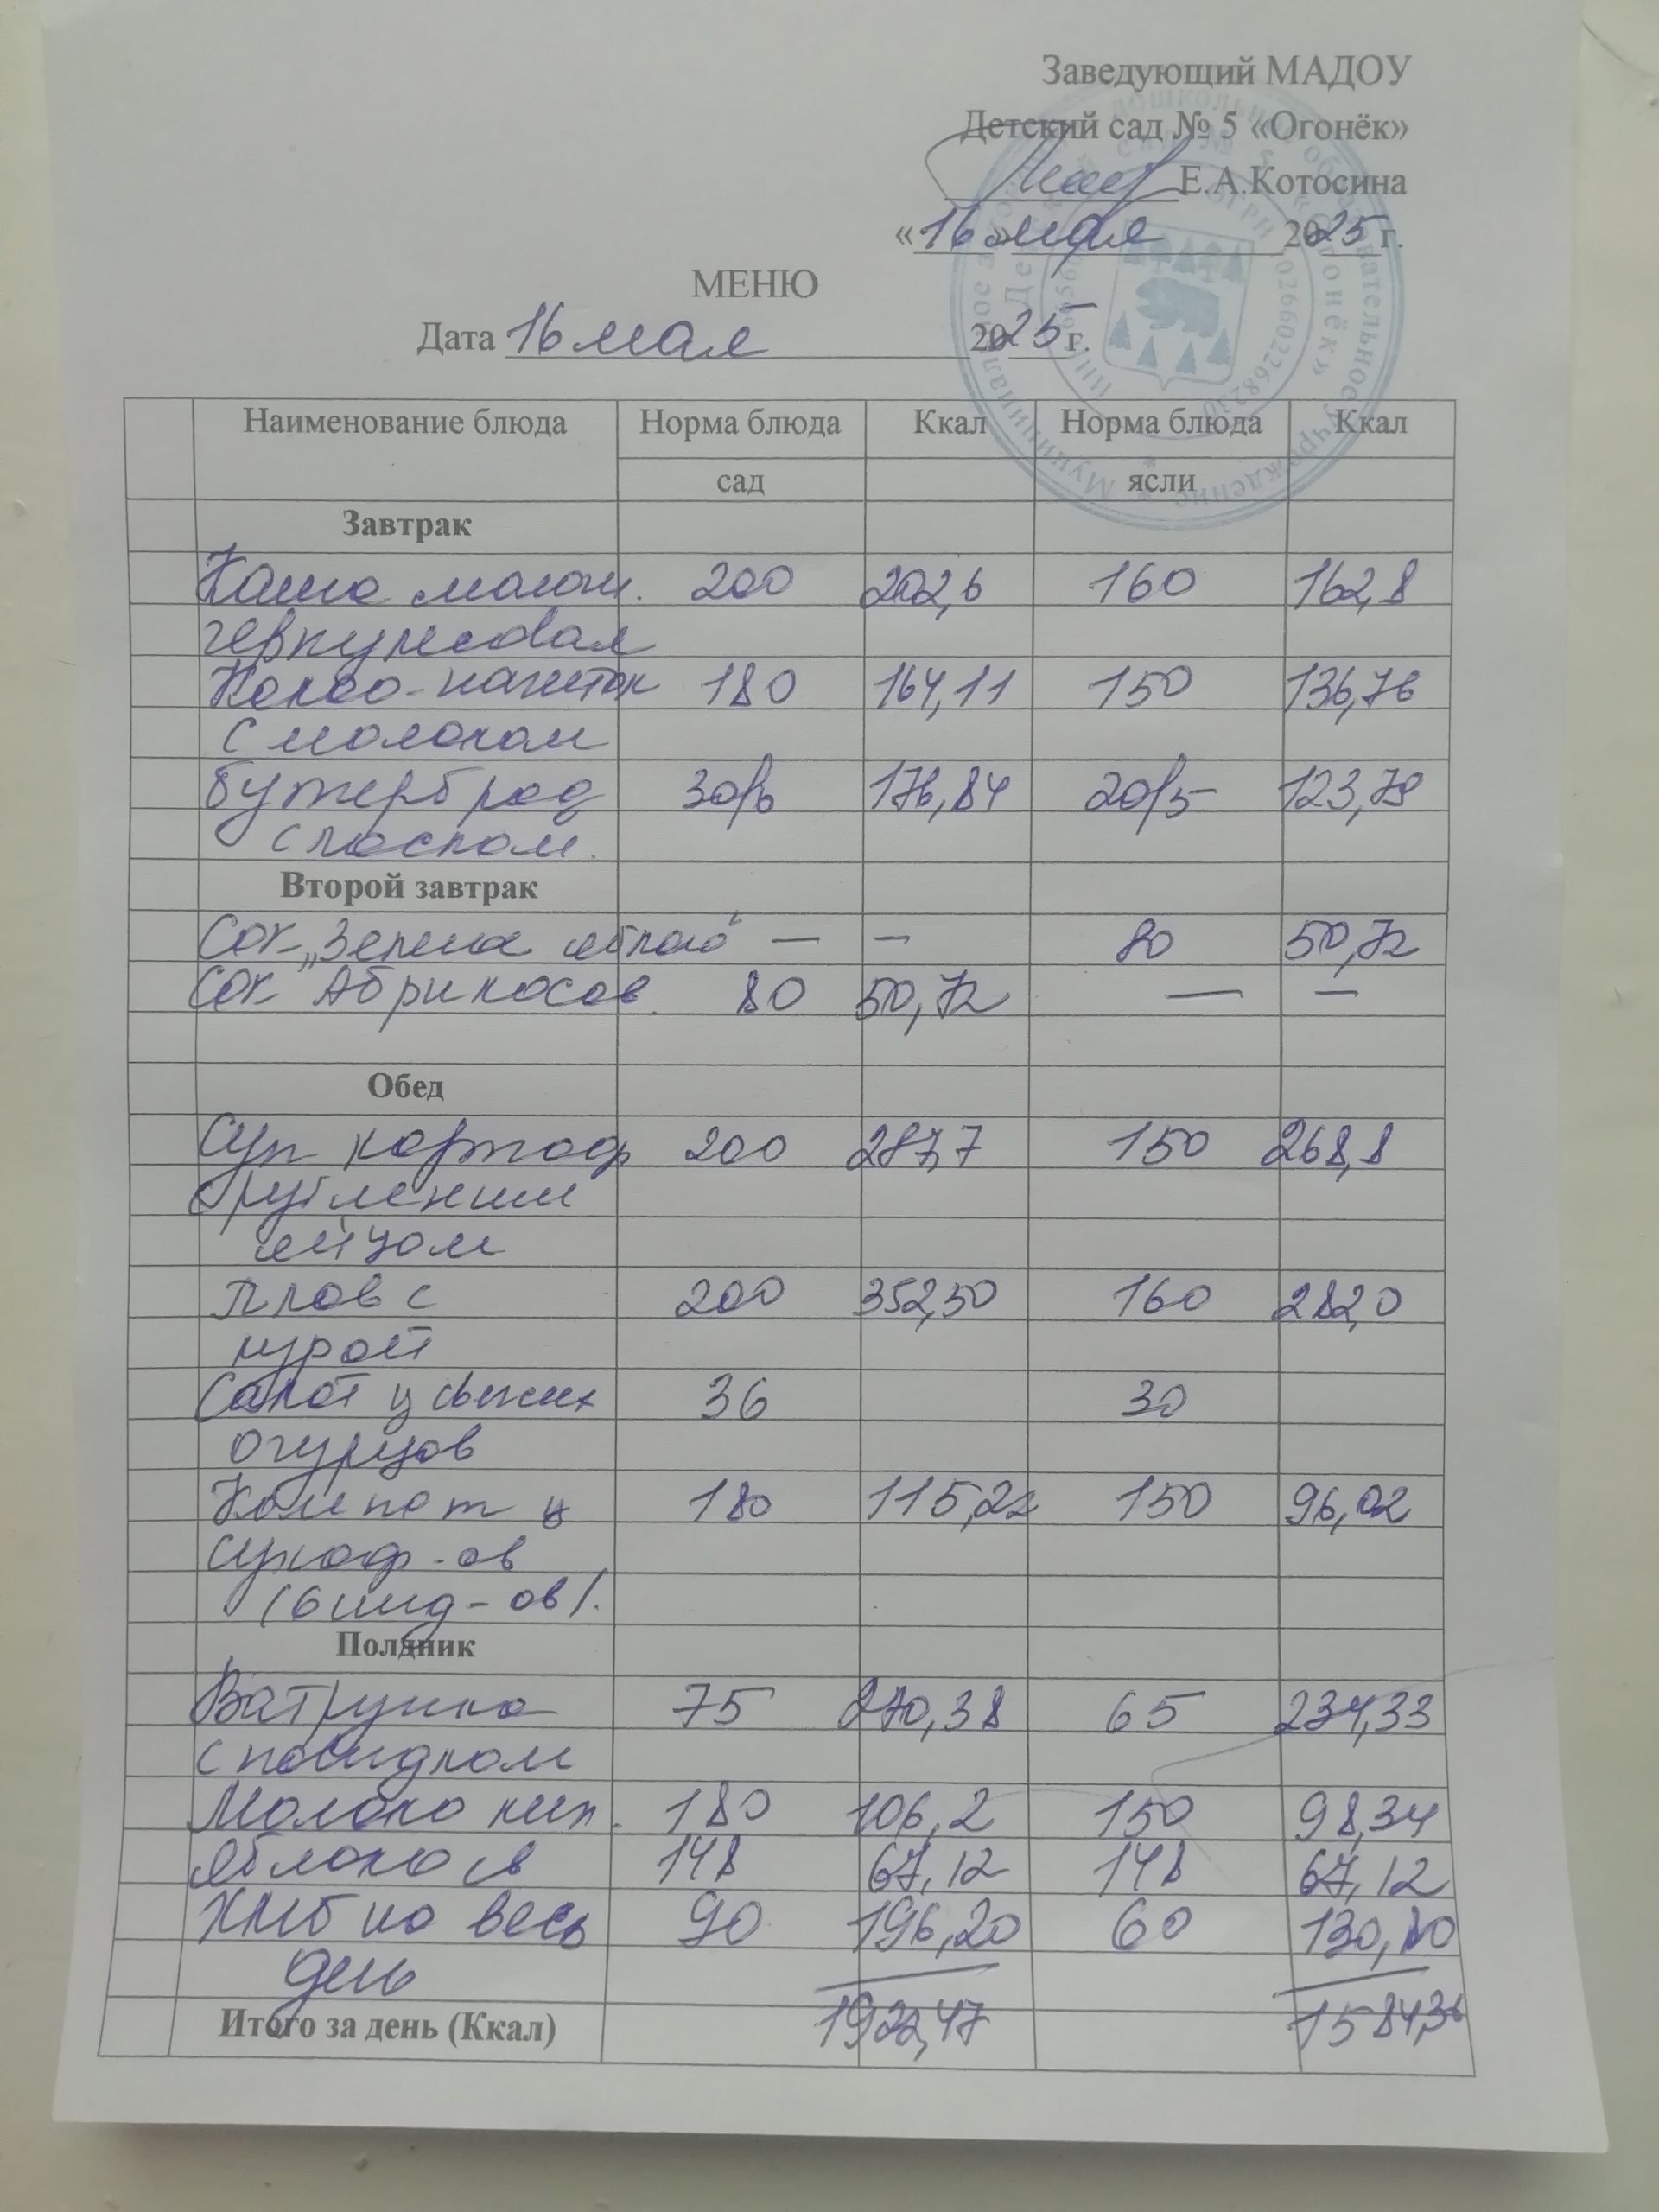 Заведующий МАДОУ
Детский сад № 5 «Огонёк»
Е.А.Котосина
«16» мая 2025 г.
МЕНЮ
Дата 16 мая 2025 г.
Наименование блюда Норма блюда Ккал Норма блюда Ккал
сад ясли
Завтрак
Каша молочн. 200 202,6 160 162,8
геркулесовая
Какао-напиток 180 164,11 150 136,76
с молоком
Бутерброд 30/6 176,84 20/5 123,79
с маслом.
Второй завтрак
Сок „Зелена яблоко" — — 80 50,72
Сок Абрикосов. 80 50,72 — —
Обед
Суп картоф 200 287,7 150 268,8
с рубленным
яйцом
Плов с 200 352,50 160 282,0
курой
Салат из свежих 36 30
огурцов
Компот из 180 115,22 150 96,02
сухоф-ов
(6 вид-ов).
Полдник
Ватрушка 75 270,38 65 234,33
с повидлом
Молоко кип. 180 106,2 150 98,34
Яблоко св 148 67,12 148 67,12
Хлеб на весь 90 196,20 60 130,80
день
Итого за день (Ккал) 1922,47 1584,36